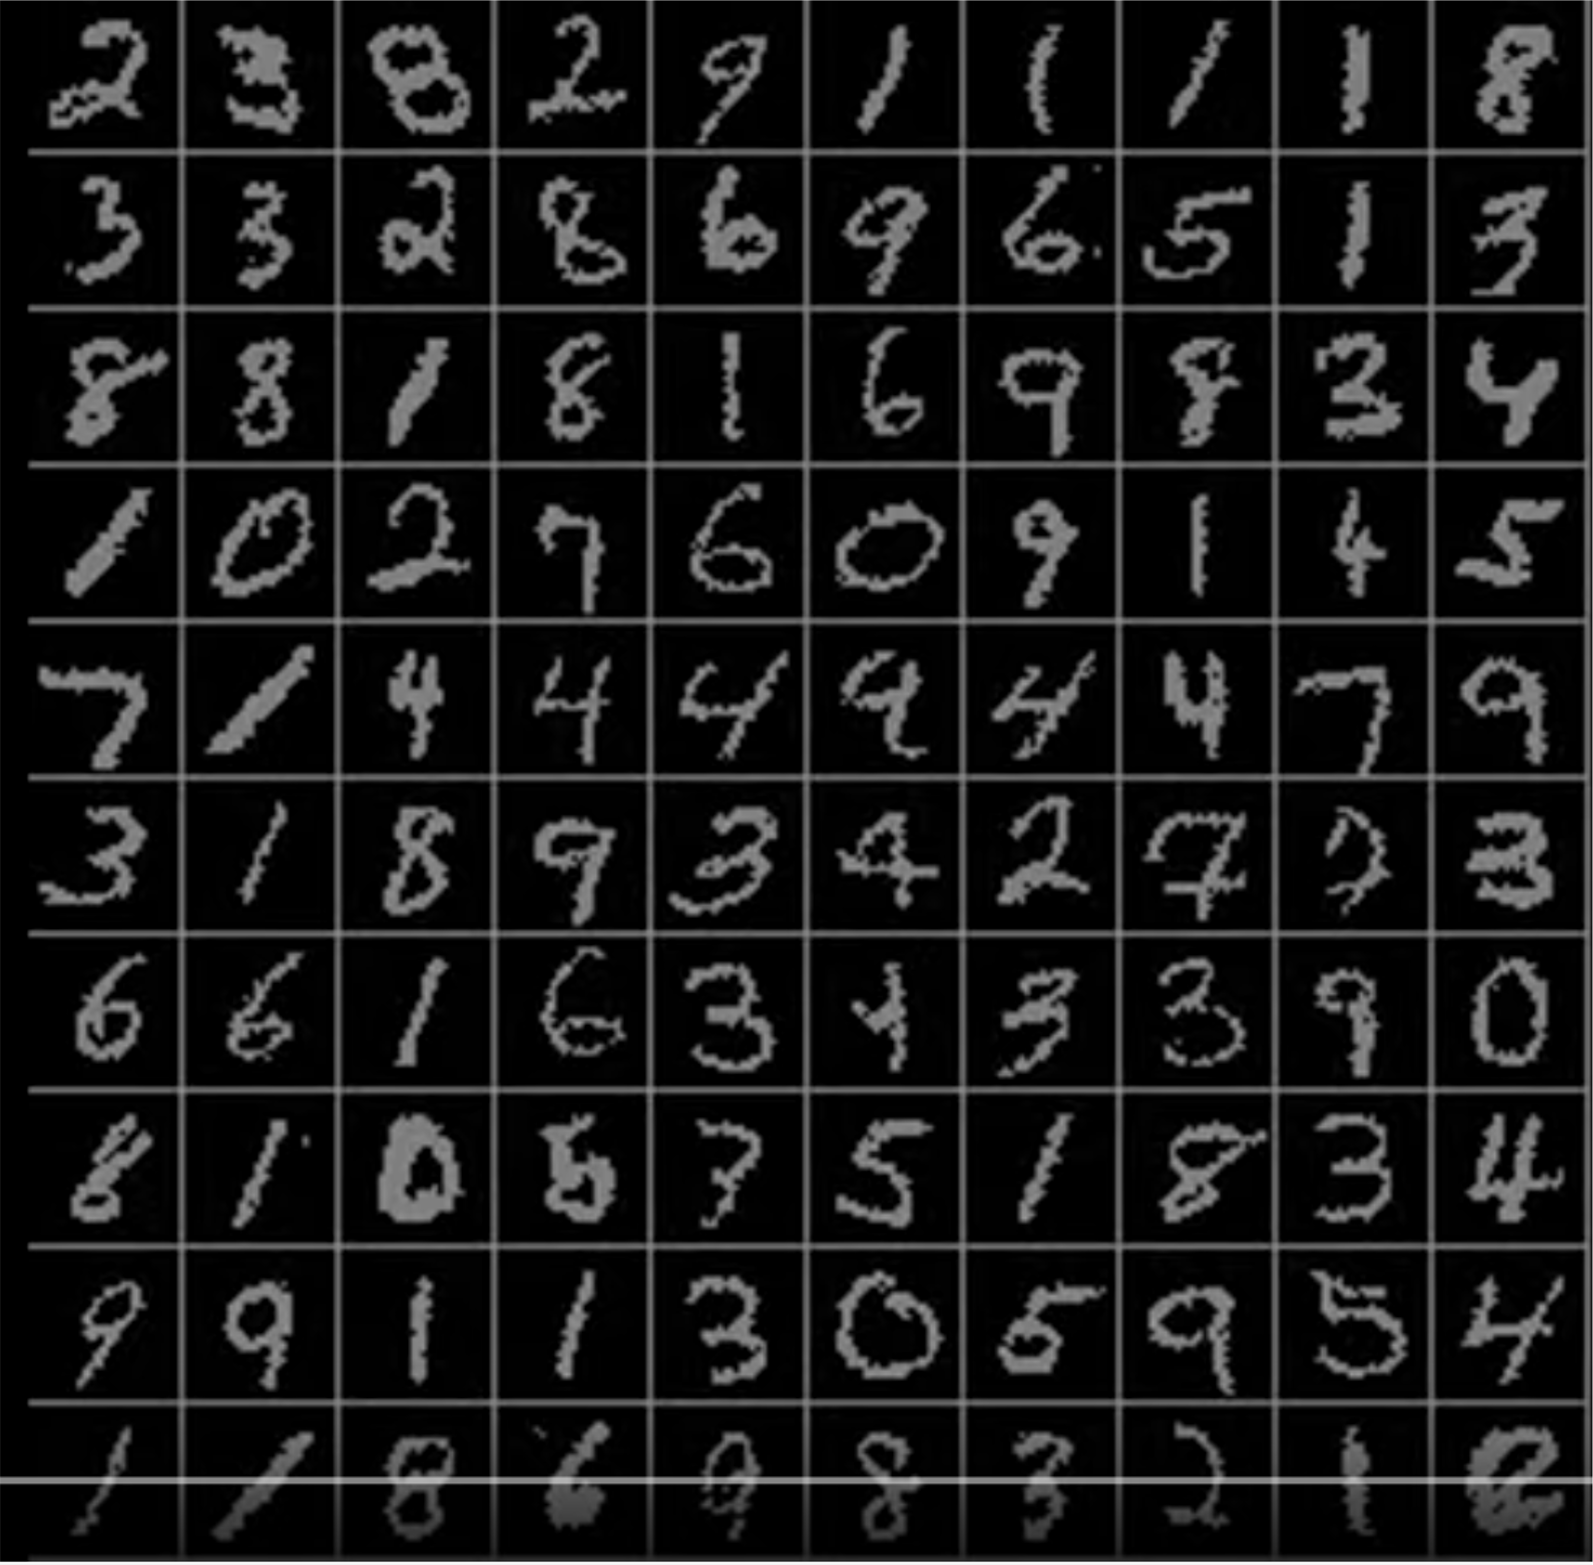 2 3 8 2 9 1 1 1 1 8
3 3 2 8 6 9 6 5 1 3
8 8 1 8 1 6 9 8 3 4
1 0 2 7 6 0 9 1 4 5
7 1 4 4 4 9 4 4 7 9
3 1 8 9 3 4 2 7 3
6 6 1 6 3 4 3 3 9 0
8 1 0 8 7 5 1 8 3 4
9 9 1 1 3 0 5 9 5 4
1 1 8 6 9 8 3 2 1